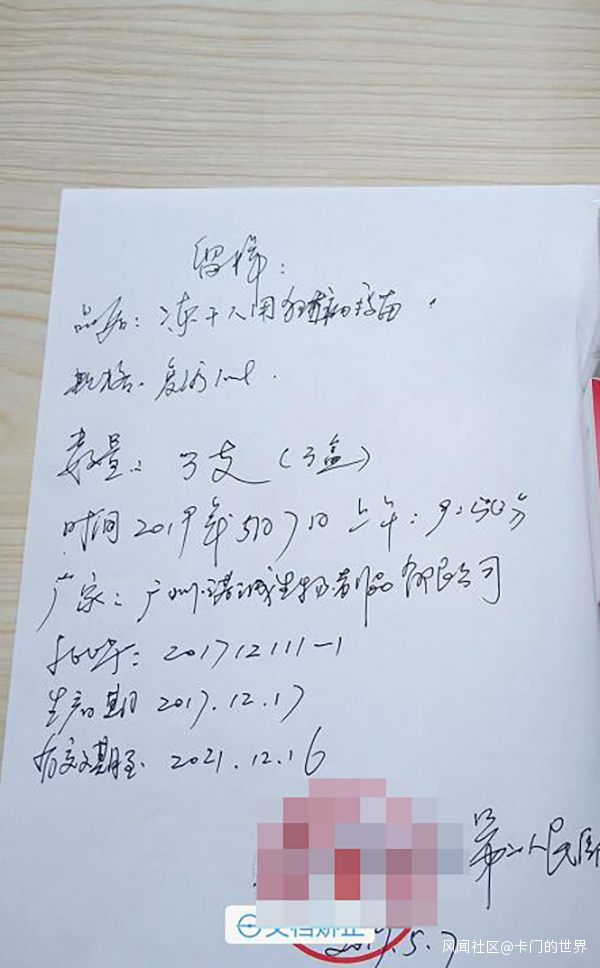 留样:
品名: 冻干人用狂犬病疫苗
规格. 复溶1ml.
数量: 3支 (3盒)
时间 2019年5月7日 上午: 9:50分
厂家: 广州诺诚生物制品有限公司
批号: 201712111-1
生产日期 2017.12.17
有效期至. 2021.12.16
第二人民医
文档矫正
2019.5.7
风闻社区@卡门的世界